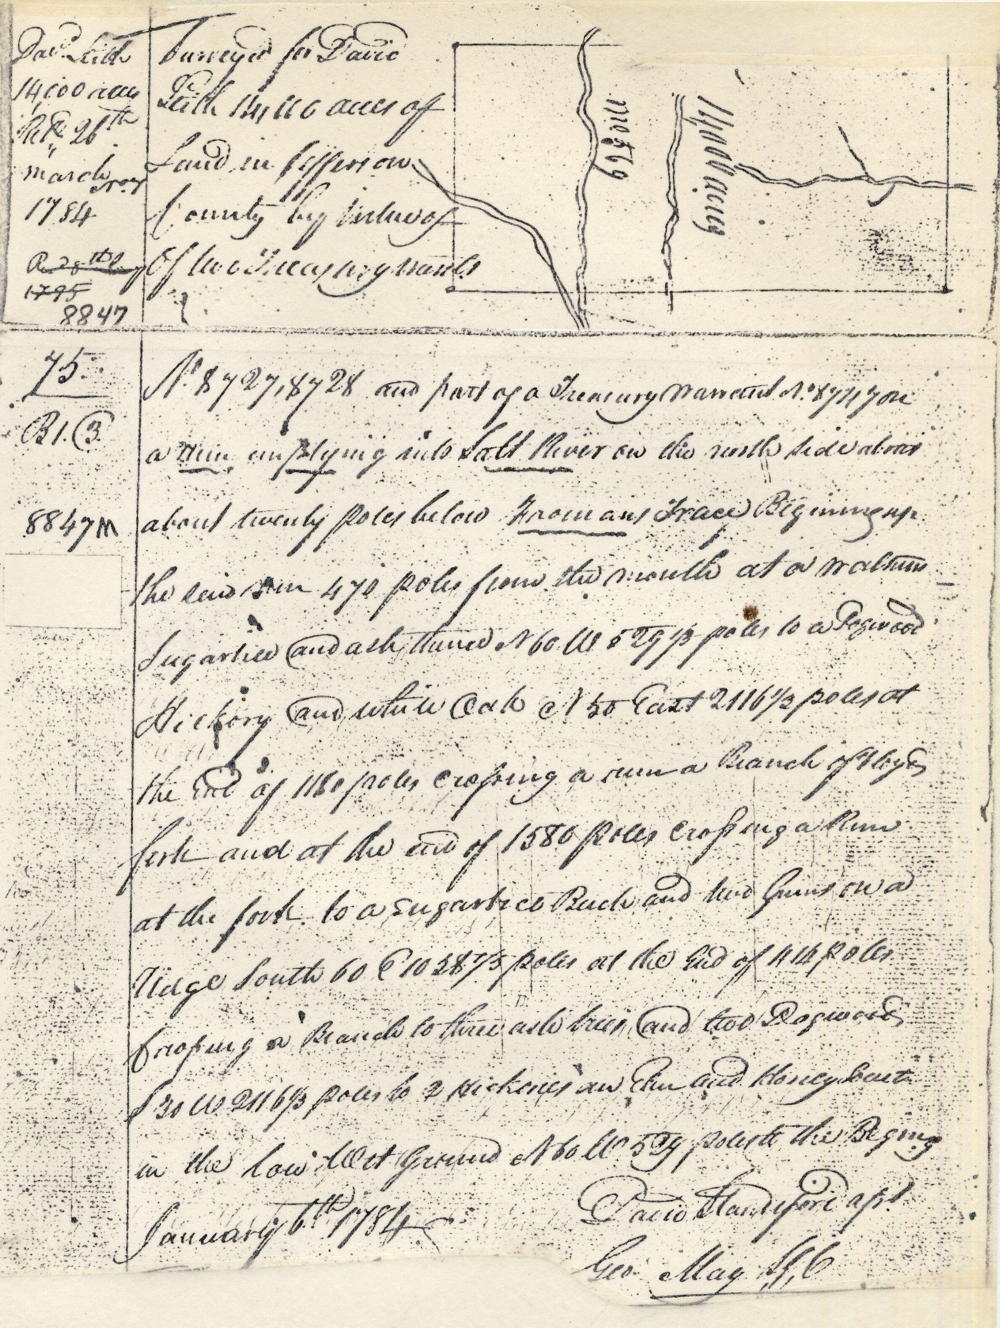 Davd Leith
14,000 acres
Recd 26th
March
1784
R 28th
1795
8847
75
B1. (3.
8847 M
Surveyed for David
Leith 14,000 acres of
Land in Jefferson
County by Virtue of
Of two Treasury Warrts
No 569
14000 acres
No 8727, 8728 and part of a Treasury Warrant No
a run emptying into Salt River on the north side above
about twenty poles below Fromans Trace Begining up
the said run 470 poles from the mouth at a
Sugartree and ash thence N 60 W 529 1/3 poles to a Dogwood
Hickory and white Oak N 30 East 2116 1/2 poles at
the End of 1180 poles crossing a run a Branch of Floyds
fork and at the end of 1580 poles crossing a Run
at the fork to a Sugartree Beech and two Gums on a
Ridge South 60 E 1058 2/3 poles at the End of 414 poles
Crossing a Branch to three ash trees and two Dogwoods
S 30 W 2116 1/3 poles to 2 Hickories an Elm and Honey Locust
in the low Wet Ground N 60 W 529 poles to the Begining
January 6th 1784
David Standeford asst
Geo May S J C